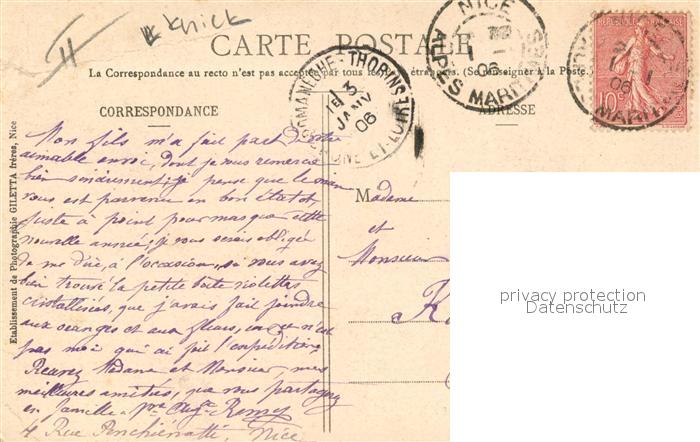 knick
II
CARTE POSTALE
La Correspondance au recto n'est pas acceptée par tous les pays étrangers. (Se renseigner à la Poste.)
NICE
ALPES MARITIMES
1 06
ROMANÈCHE-THORINS
SAÔNE-ET-LOIRE
3
JANV
06
REPUBLIQUE FRANÇAISE
10c
CORRESPONDANCE
ADRESSE
Mon fils m'a fait part de votre
aimable envoi, dont je vous remercie
bien sincèrement; je pense que le mien
vous est parvenu en bon état et
juste à point pour marquer cette
nouvelle année; je vous serais obligée
de me dire, à l'occasion, si vous avez
bien trouvé la petite boîte violettes
cristallisées, que j'avais fait joindre
aux oranges et aux fleurs, car ce n'est
pas moi qui ai fait l'expédition.
Recevez Madame et Monsieur, mes
meilleures amitiés, que vous partagerez
en famille. Vve Aug. Remy
4 Rue Nice
Madame
et
Monsieur
K
Etablissement de Photographie GILETTA frères, Nice
privacy protection
Datenschutz